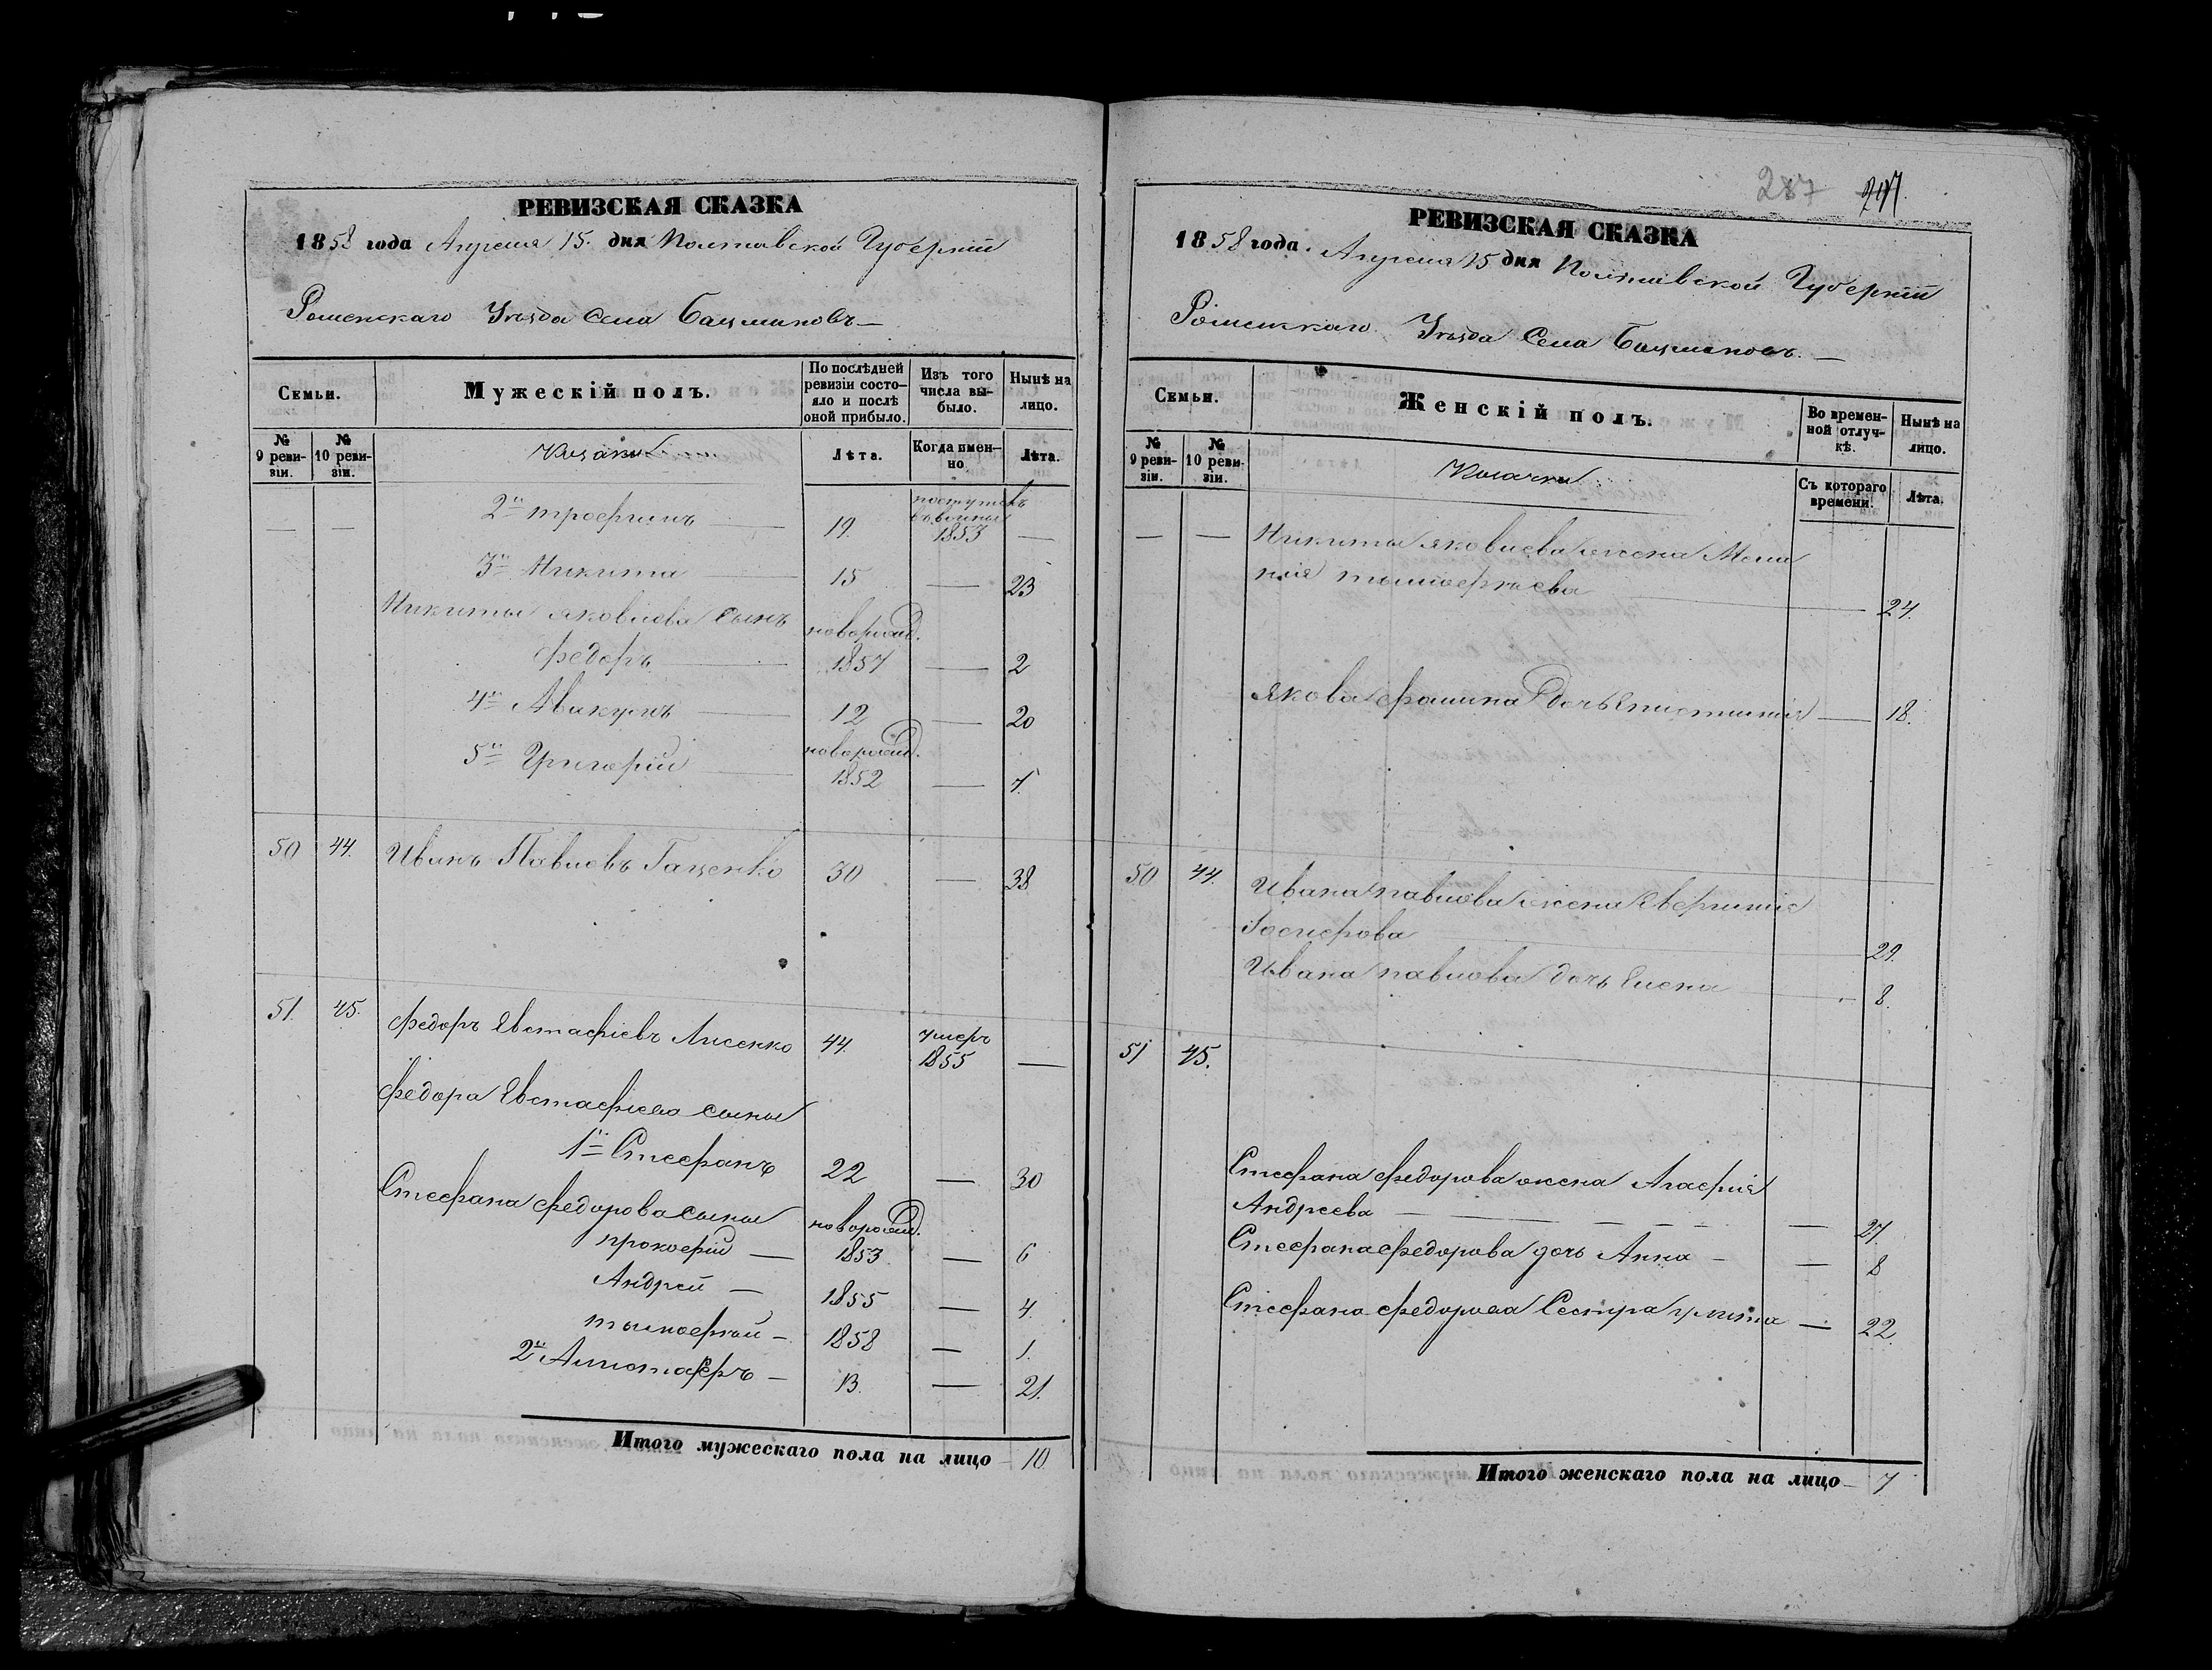 РЕВИЗСКАЯ СКАЗКА
1858 года Апреля 15. дня Полтавской Губерніи
Роменскаго Уезда Села Бацмановъ
Семьи.
Мужескій полъ.
По послѣдней ревизіи состояло и послѣ оной прибыло.
Изъ того числа выбыло.
Нынѣ на лицо.
№ 9 ревизіи.
№ 10 ревизіи.
Козаки
Лѣта.
Когда именно
Лѣта.
— — 2й Трофимъ — 19. поступилъ 1853 —
3й Никита — 15 — 23
Никиты Яковлева сынъ новорожд.
Федоръ — 1857 — 2
4й Авакумъ — 12 — 20
5й Григорій — новорожд. 1852 — 7.
50 44. Иванъ Павловъ Гаценко 30 — 38
51. 45. Федоръ Евстафіевъ Лисенко 44. умеръ 1855 —
Федора Евстафіева сыны
1й Стефанъ 22 — 30
Стефана Федорова сыны новорожд.
Прокофій — 1853 — 6
Андрей — 1855 — 4.
Тымофтей — 1858 — 1.
2й Аллистафоръ — 13. — 21.
Итого мужескаго пола на лицо 10
287
РЕВИЗСКАЯ СКАЗКА
1858 года. Апреля 15 дня Полтавской Губерніи
Роменскаго Уезда Села Бацмановъ. —
Семьи.
Женскій полъ.
Во временной отлучкѣ.
Нынѣ на лицо.
№ 9 ревизіи.
№ 10 ревизіи.
Козачки
Съ котораго времени.
Лѣта.
— — Никиты Яковлева жена Мела
нія Тымофѣева — 24.
Якова Фомина дочь — 18.
50 44. Ивана Павлова жена Евфимія
— 29.
Ивана Павлова дочь Елена — 8.
51 45.
Стефана Федорова жена Агафія
Андреева — — 27.
Стефана Федорова дочь Анна — — 8
Стефана Федорова Сестра Улита — 22
Итого женскаго пола на лицо 7